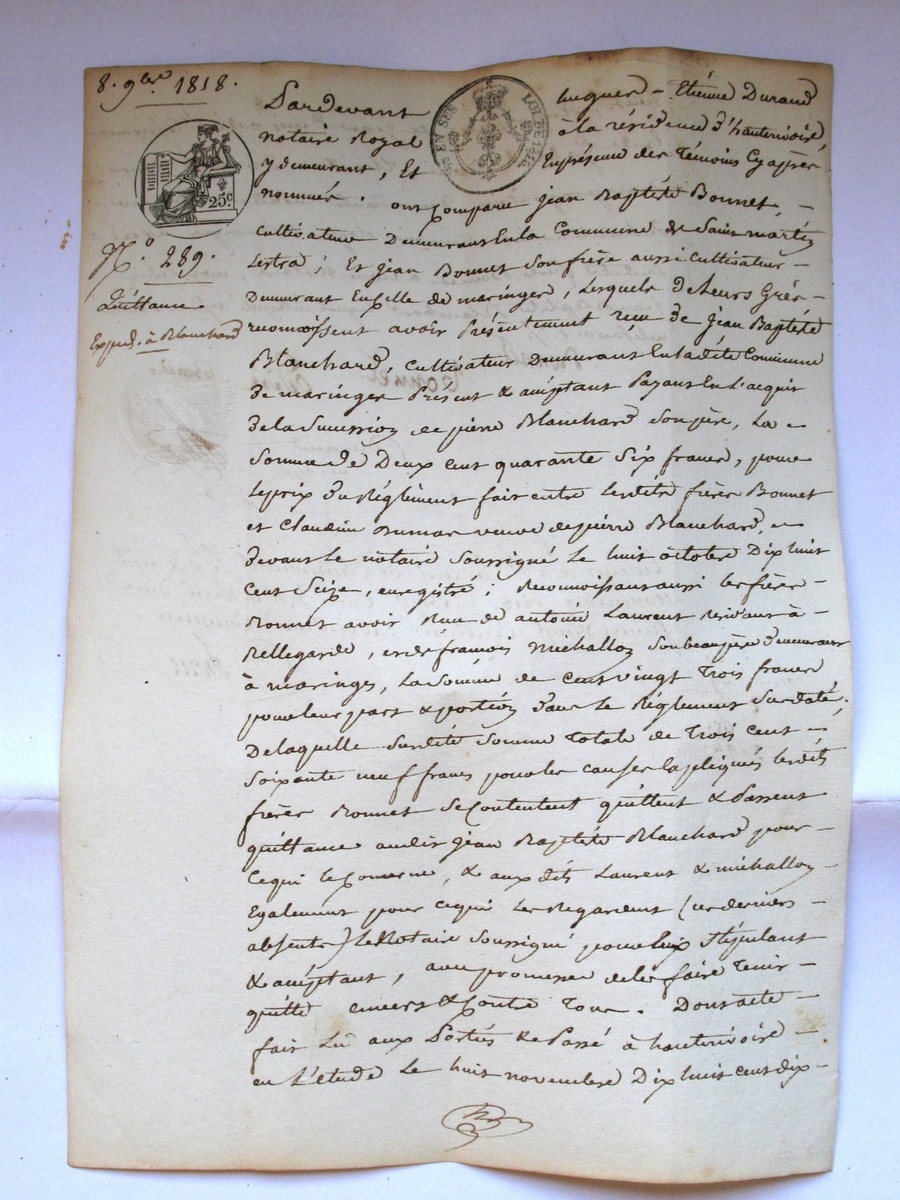 8. 9bre 1818.
Pardevant hugues - Etiênne Durand
notaire Royal à la résidence d'hauterivoire,
y demeurant, Et En présence des Témoins Cy après
nommés. ont Comparu jean Baptiste Bonnet, -
Cultivateur Demeurant En la Commune de Saint martin
Lestra; Et jean Bonnet Son frère aussi Cultivateur -
Demeurant En Celle de maringes, Lesquels de Leurs Grés -
reconnoissent avoir Présentement reçu de jean Baptiste
Blanchard, Cultivateur Demeurant En ladite Commune
de maringes Présent & acceptant Payant En L'acquit
de la Succession de pierre Blanchard Son père, La -
Somme de Deux cent quarante Six francs, pour
Le prix du Réglement fait entre Lesdits frères Bonnet
et Claudine Dumas veuve de pierre Blanchard, -
devant Le notaire Soussigné Le huit octobre Dix huit
Cent Seize, enregistré; Reconnoissant aussi les frères -
Bonnet avoir Reçu de antoine Laurent Résidant à -
Bellegarde, et de françois michallon Son beau père demeurant
à maringes, La Somme de Cent vingt Trois francs
pour leur part & portion dans Le Réglement Surdaté;
De laquelle Surdité Somme Totale de Trois Cent -
Soixante neuf francs pour les causes Expliquées lesdits
frères Bonnet Se Contentent quittent & Passent
quittance audit jean Baptiste Blanchard pour -
Ce qui le Concerne, & aux dits Laurent & michallon
Egalement pour ce qui Les Regardent (ces derniers -
absents) Le Notaire Soussigné pour Eux Stipulant
& acceptant, avec promesse de les faire Tenir -
quitte envers & Contre Tous. Dont acte -
fait Lu aux Parties & Passé à hauterivoire -
en L'étude Le huit novembre Dix huit cent dix -
25c
EN SES
LOI DE 1816
N.o 289.
Quittance
Exped. à Blanchard